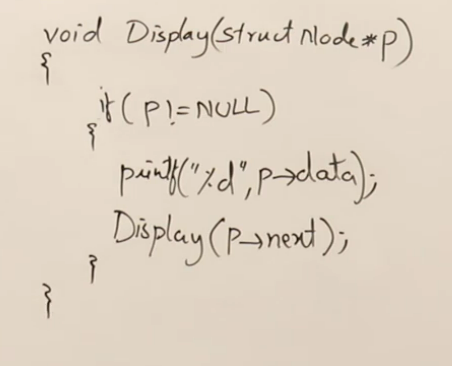 void Display(struct Node*p)
{
if(p!=NULL)
{
printf("%d",p→data);
Display(p→next);
}
}